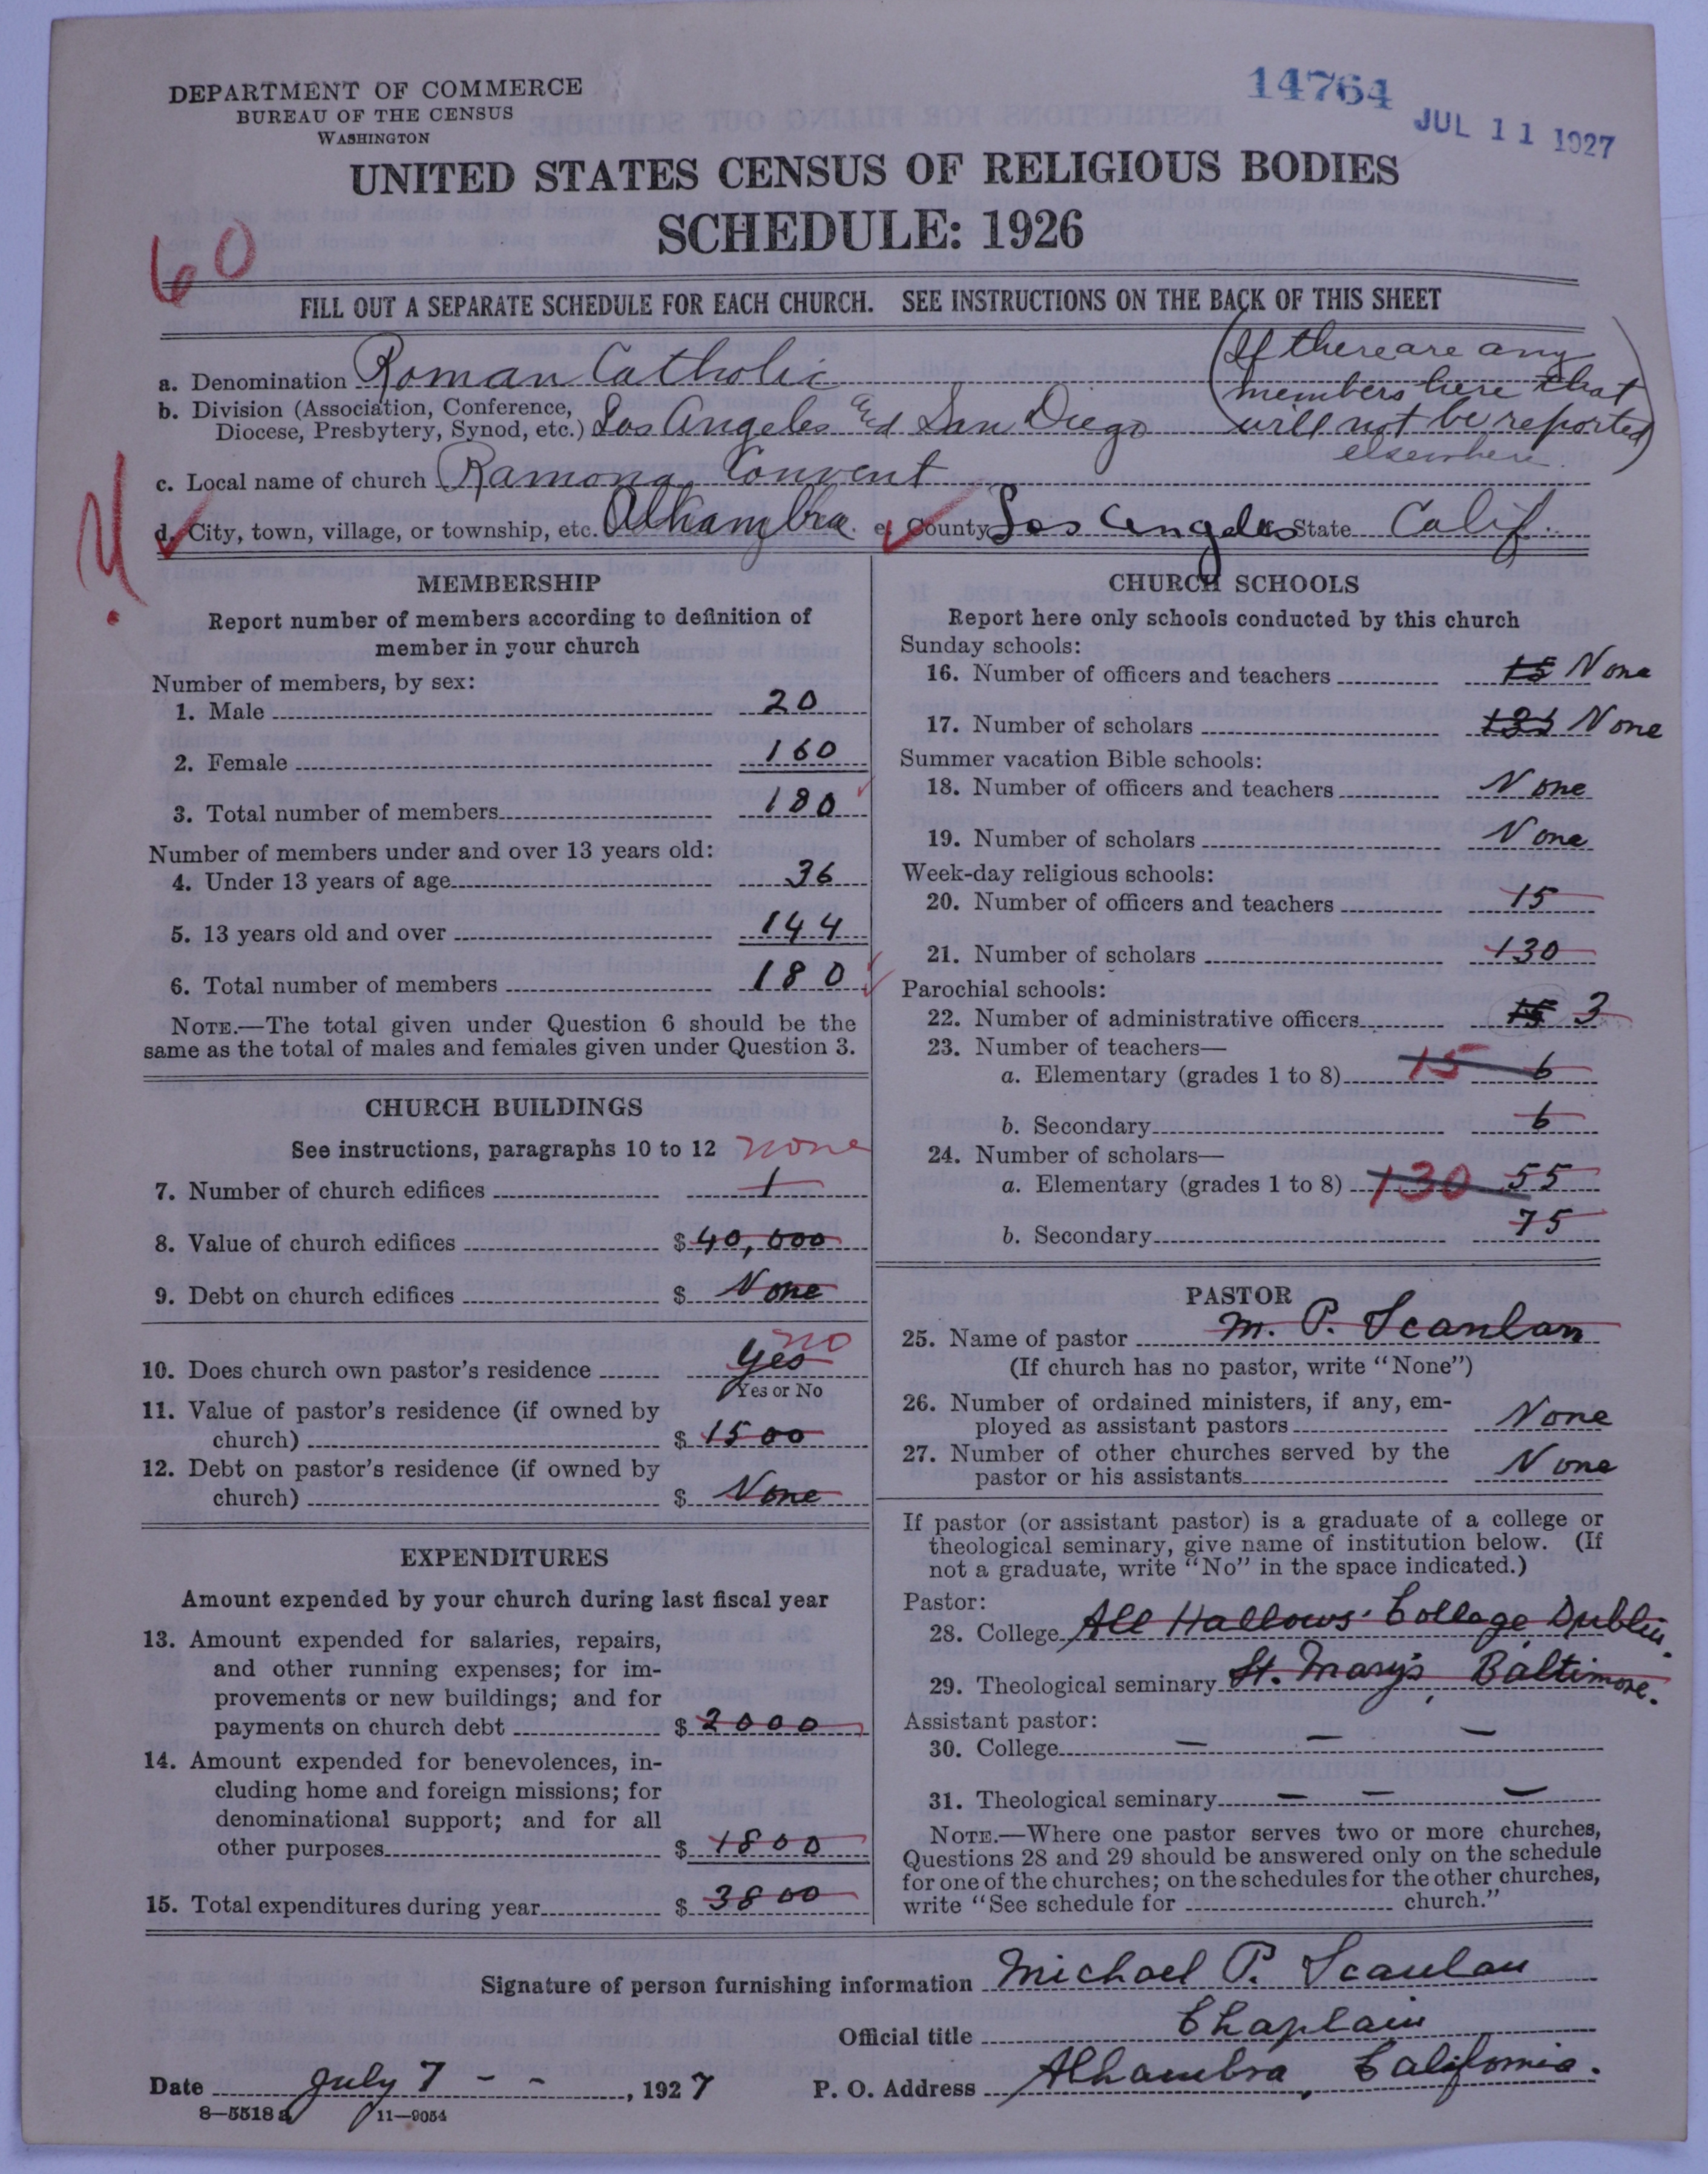 DEPARTMENT OF COMMERCE
BUREAU OF THE CENSUS
WASHINGTON
14764
JUL 11 1927
UNITED STATES CENSUS OF RELIGIOUS BODIES
SCHEDULE: 1926
60
FILL OUT A SEPARATE SCHEDULE FOR EACH CHURCH. SEE INSTRUCTIONS ON THE BACK OF THIS SHEET
a. Denomination Roman Catholic
b. Division (Association, Conference, Diocese, Presbytery, Synod, etc.) Los Angeles and San Diego
(If there are any
members here that
will not be reported
elsewhere)
c. Local name of church Ramona Convent
d. City, town, village, or township, etc. Alhambra. e. County Los Angeles State Calif.
MEMBERSHIP
Report number of members according to definition of
member in your church
Number of members, by sex:
1. Male 20
2. Female 160
3. Total number of members 180
Number of members under and over 13 years old:
4. Under 13 years of age 36
5. 13 years old and over 144
6. Total number of members 180
NOTE.—The total given under Question 6 should be the
same as the total of males and females given under Question 3.
CHURCH BUILDINGS
See instructions, paragraphs 10 to 12 none
7. Number of church edifices 1
8. Value of church edifices $ 40,000
9. Debt on church edifices $ None
no
10. Does church own pastor's residence Yes
Yes or No
11. Value of pastor's residence (if owned by
church) $ 1500
12. Debt on pastor's residence (if owned by
church) $ None
EXPENDITURES
Amount expended by your church during last fiscal year
13. Amount expended for salaries, repairs,
and other running expenses; for im-
provements or new buildings; and for
payments on church debt $ 2000
14. Amount expended for benevolences, in-
cluding home and foreign missions; for
denominational support; and for all
other purposes $ 1800
15. Total expenditures during year $ 3800
CHURCH SCHOOLS
Report here only schools conducted by this church
Sunday schools:
16. Number of officers and teachers 15 None
17. Number of scholars None
Summer vacation Bible schools:
18. Number of officers and teachers None
19. Number of scholars None
Week-day religious schools:
20. Number of officers and teachers 15
21. Number of scholars 130
Parochial schools:
22. Number of administrative officers 15 3
23. Number of teachers—
a. Elementary (grades 1 to 8) 15 6
b. Secondary 6
24. Number of scholars—
a. Elementary (grades 1 to 8) 130 55
b. Secondary 75
PASTOR
25. Name of pastor M. P. Scanlan
(If church has no pastor, write "None")
26. Number of ordained ministers, if any, em-
ployed as assistant pastors None
27. Number of other churches served by the
pastor or his assistants None
If pastor (or assistant pastor) is a graduate of a college or
theological seminary, give name of institution below. (If
not a graduate, write "No" in the space indicated.)
Pastor:
28. College All Hallows' College Dublin.
29. Theological seminary St. Mary's, Baltimore.
Assistant pastor:
30. College — — —
31. Theological seminary — — —
NOTE.—Where one pastor serves two or more churches,
Questions 28 and 29 should be answered only on the schedule
for one of the churches; on the schedules for the other churches,
write "See schedule for church."
Signature of person furnishing information Michael P. Scanlan
Official title Chaplain
Date July 7 - - , 1927 P. O. Address Alhambra, California.
8—5518a 11—9054